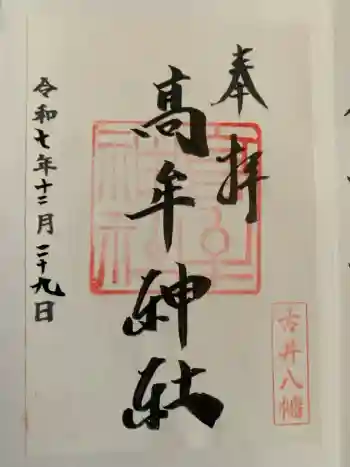 奉拝
高牟神社
令和七年十二月二十九日
古井八幡